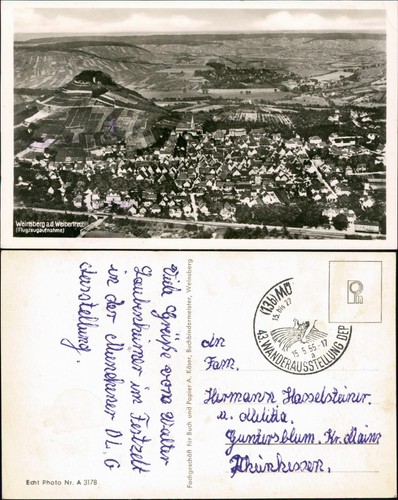 Weinsberg a.d. Weibertreu
(Flugzeugaufnahme)
Viele Grüße von Walter
Lauterheimer im Festzelt
in der Münchner D.L.G
Ausstellung.
Fachgeschäft für Buch und Papier A. Käser, Buchbindermeister, Weinsberg
(13b) MÜ
15. bis 27
43. WANDERAUSSTELLUNG DER
15.5.55-17
a
An
Fam.
Hermann Hasselsteiner.
u. Melitta.
Guntersblum. Kr. Mainz
Rheinhessen.
Echt Photo Nr. A 3178